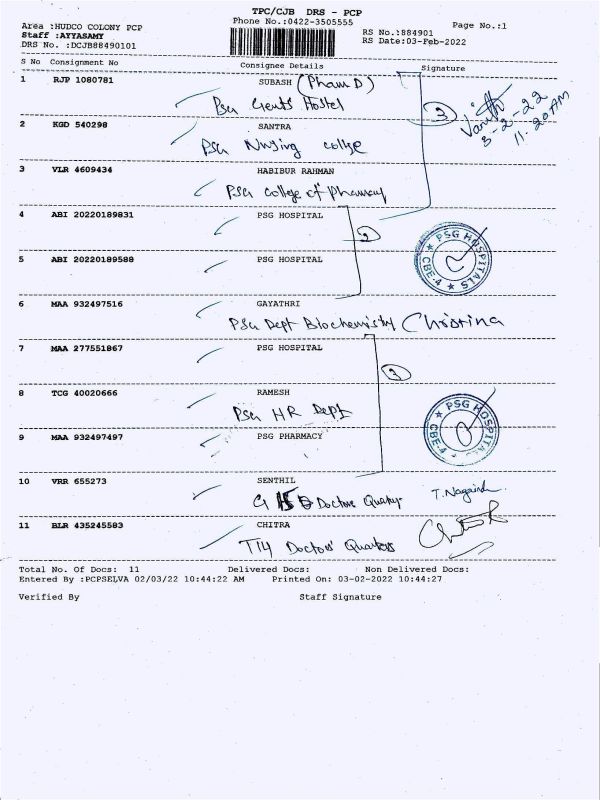 TPC/CJB DRS - PCP
Area :HUDCO COLONY PCP
Phone No.:0422-3505555
Page No.:1
Staff :AYYASAMY
RS No.:884901
DRS No. :DCJB88490101
RS Date:03-Feb-2022
S No Consignment No Consignee Details Signature
1 RJP 1080781 SUBASH (Pham D)
Psg Gents Hostel
3
3-2-22
11.20 AM
2 KGD 540298 SANTRA
Psg Nursing college
3 VLR 4609434 HABIBUR RAHMAN
PSG College of Pharmacy
4 ABI 20220189831 PSG HOSPITAL
2
PSG HOSPITALS
CBE-4
5 ABI 20220189588 PSG HOSPITAL
6 MAA 932497516 GAYATHRI
PSG Dept Biochemistry Christina
7 MAA 277551867 PSG HOSPITAL
3
8 TCG 40020666 RAMESH
PSG HR Dept
PSG HOSPITALS
CBE-4
9 MAA 932497497 PSG PHARMACY
10 VRR 655273 SENTHIL
Doctors
11 BLR 435245583 CHITRA
T14 Doctors' Quarters
Total No. Of Docs: 11 Delivered Docs: Non Delivered Docs:
Entered By :PCPSELVA 02/03/22 10:44:22 AM Printed On: 03-02-2022 10:44:27
Verified By Staff Signature